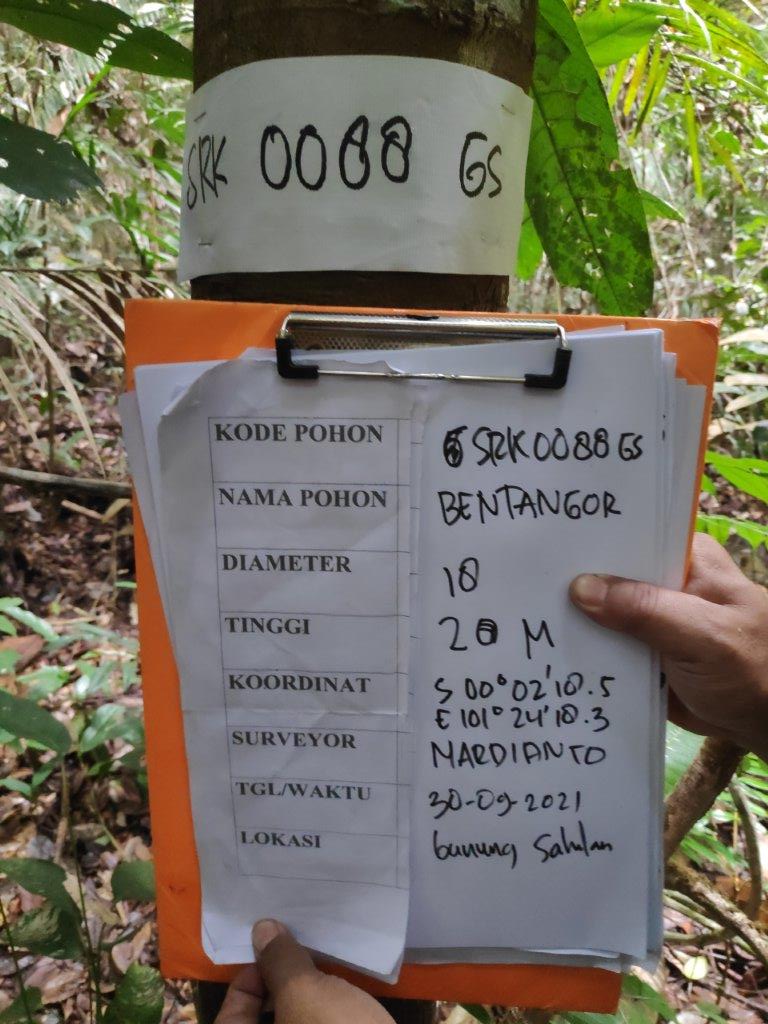 SRK 0088 GS
KODE POHON SRK0088GS
NAMA POHON BENTANGOR
DIAMETER 18
TINGGI 20 M
KOORDINAT S 00° 02' 18.5
E 101° 24' 18.3
SURVEYOR MARDIANTO
TGL/WAKTU 30-09-2021
LOKASI Gunung Sahilan